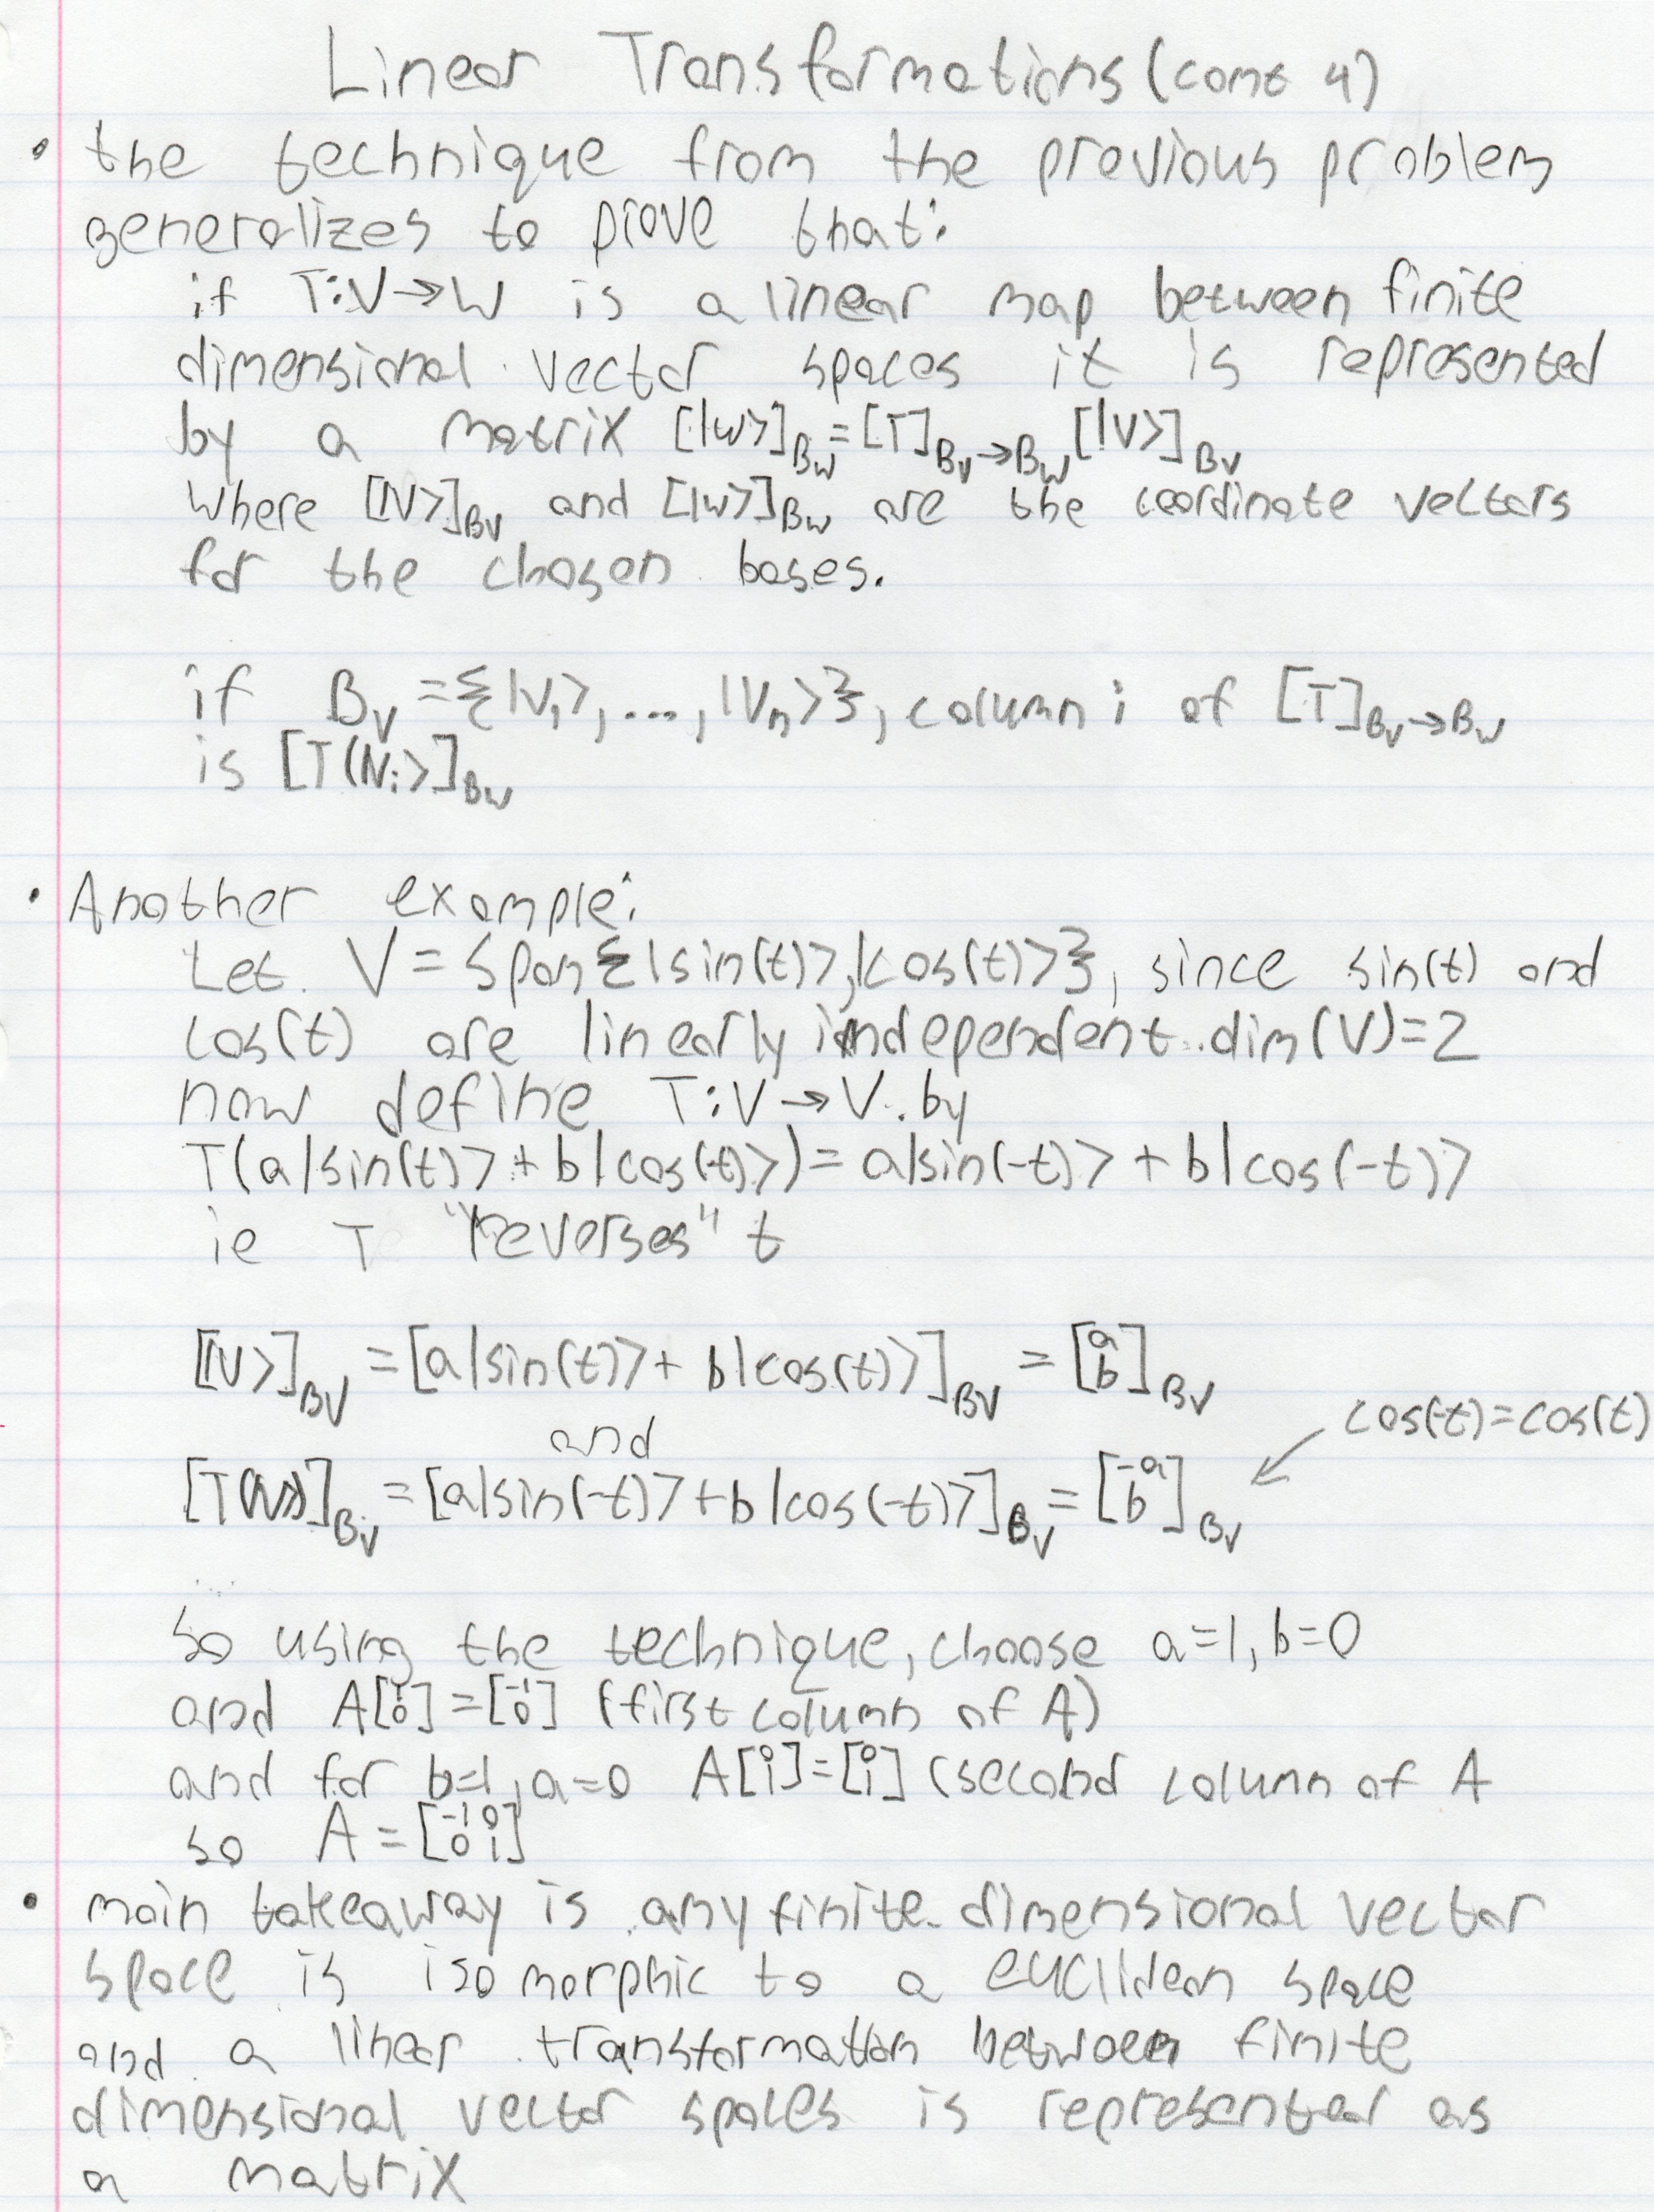 Linear Transformations (cont 4)
• the technique from the previous problem
generalizes to prove that:
if T:V→W is a linear map between finite
dimensional vector spaces it is represented
by a matrix [|w>]_{B_W} = [T]_{B_V→B_W} [|V>]_{B_V}
where [|V>]_{B_V} and [|w>]_{B_W} are the coordinate vectors
for the chosen bases.
if B_V = {|V_1>, ..., |V_n>}, column i of [T]_{B_V→B_W}
is [T(|V_i>]_{B_W}
• Another example:
Let V = span{|sin(t)>,|cos(t)>}, since sin(t) and
cos(t) are linearly independent dim(V)=2
now define T:V→V by
T(a|sin(t)> + b|cos(t)>) = a|sin(-t)> + b|cos(-t)>
ie T "reverses" t
[|V>]_{B_V} = [a|sin(t)> + b|cos(t)>]_{B_V} = [a b]_{B_V}
and
cos(-t)=cos(t)
[T(|V>)]_{B_V} = [a|sin(-t)> + b|cos(-t)>]_{B_V} = [-a b]_{B_V}
so using the technique, choose a=1, b=0
and A[1 0] = [-1 0] (first column of A)
and for b=1, a=0 A[0 1] = [0 1] (second column of A
so A = [-1 0 0 1]
• main takeaway is any finite dimensional vector
space is isomorphic to a euclidean space
and a linear transformation between finite
dimensional vector spaces is represented as
a matrix